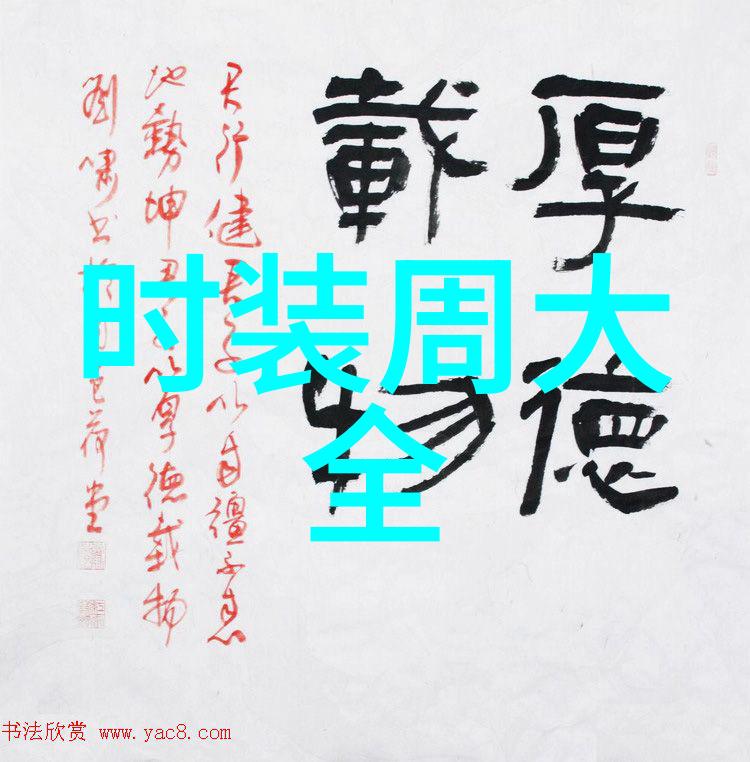 厚德
載物
天行健君子以自彊不息
地勢坤君子以厚德載物
劉嘯书
时装周大
全
书法欣赏 www.yac8.com